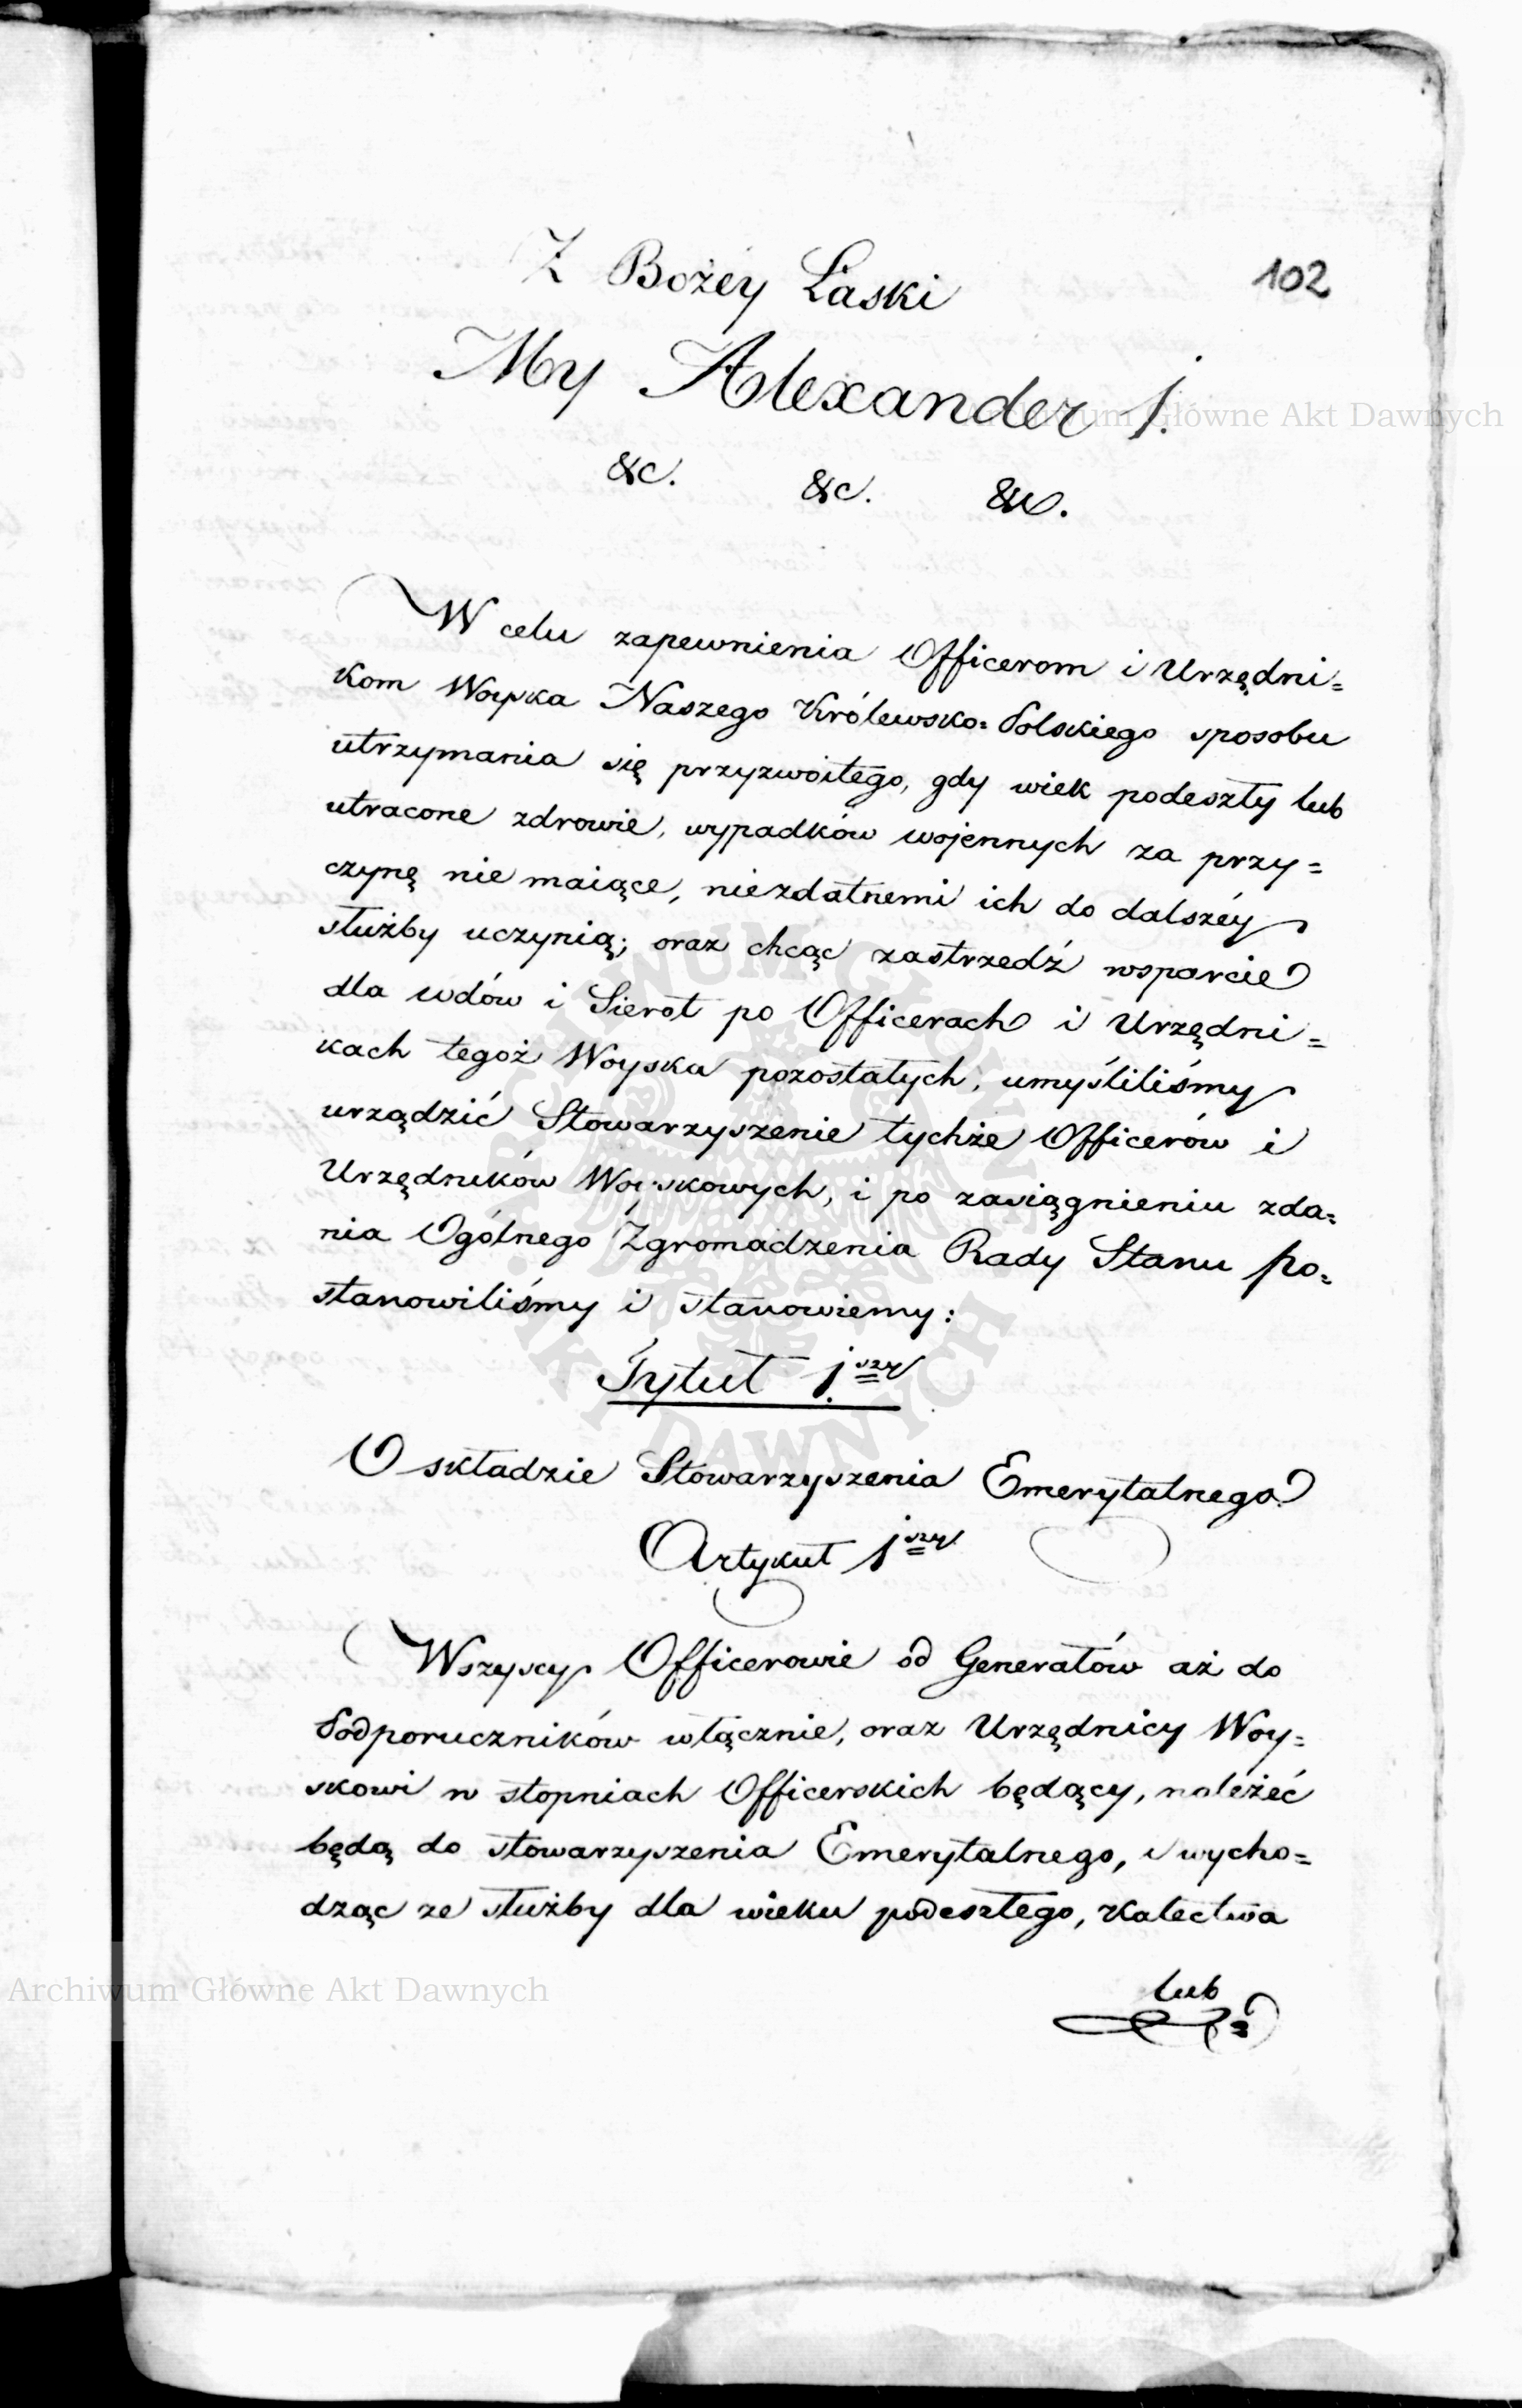 102
Z Bożey Łaski
My Alexander I.
&c. &c. &c.
W celu zapewnienia Officerom i Urzędni=
kom Woyska Naszego Królewsko=Polskiego sposobu
utrzymania się przyzwoitego, gdy wiek podeszły lub
utracone zdrowie, wypadków wojennych za przy=
czynę nie maiące, niezdatnemi ich do dalszéy
służby uczynią; oraz chcąc zastrzedź wsparcie
dla wdów i Sierot po Officerach i Urzędni=
kach tegoż Woyska pozostałych, umyśliliśmy
urządzić Stowarzyszenie tychże Officerów i
Urzędników Woyskowych, i po zasiągnieniu zda=
nia Ogólnego Zgromadzenia Rady Stanu po=
stanowiliśmy i stanowiemy:
Tytuł 1szy
O składzie Stowarzyszenia Emerytalnego
Artykuł 1szy
Wszyscy Officerowie od Generałów aż do
Podporuczników włącznie, oraz Urzędnicy Woy=
skowi w stopniach Officerskich będący, należéć
będą do stowarzyszenia Emerytalnego, i wycho=
dząc ze służby dla wieku podeszłego, kalectwa
lub
Archiwum Główne Akt Dawnych
Archiwum Główne Akt Dawnych
ARCHIWUM GŁÓWNE AKT DAWNYCH